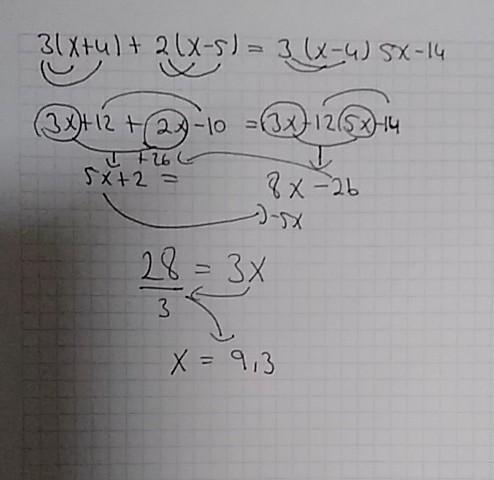 3(x+4) + 2(x-5) = 3(x-4) 5x-14
3x+12 + 2x-10 = 3x-12 5x-14
+26
5x+2 = 8x-26
-5x
28/3 = 3x
x = 9,3